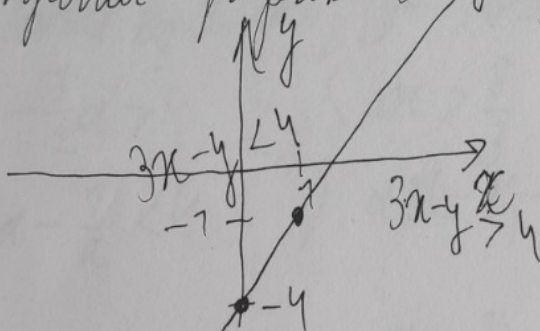 y
3x-y < 4
1
x
-1
3x-y > 4
-4